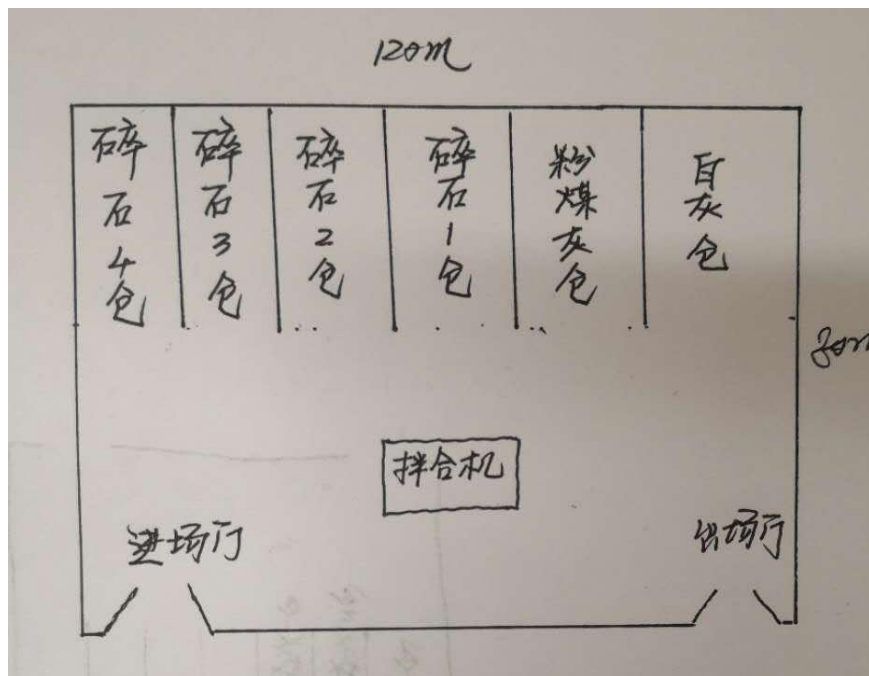 120m
碎石4仓
碎石3仓
碎石2仓
碎石1仓
粉煤灰仓
白灰仓
80m
拌合机
进场门
出场门